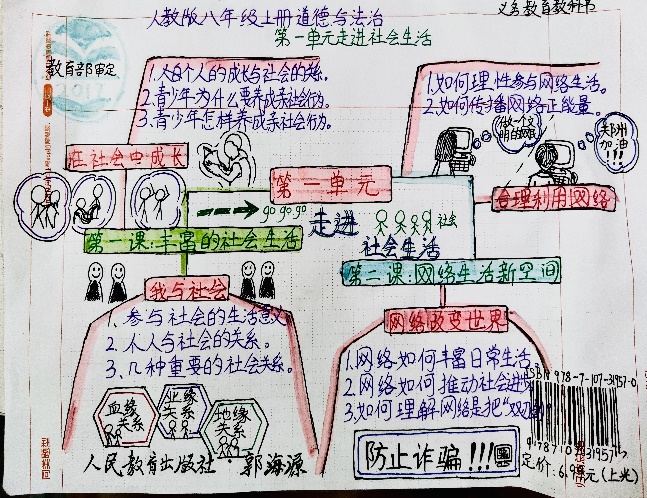 人教版八年级上册道德与法治
义务教育教科书
第一单元走进社会生活
教育部审定
2017
1.人的个人的成长与社会的关系。
2.青少年为什么要养成亲社会行为。
3.青少年怎样养成亲社会行为。
1.如何理性参与网络生活。
2.如何传播网络正能量。
做一个文明的网民
郑州加油!!!
在社会中成长
合理利用网络
第一单元
go go go
走进
社会
社会生活
第一课:丰富的社会生活
第二课:网络生活新空间
我与社会
网络改变世界
1.参与社会的生活意义
2.个人与社会的关系。
3.几种重要的社会关系。
1.网络如何丰富日常生活
2.网络如何推动社会进步
3.如何理解网络是把"双刃剑"
血缘关系
业缘关系
地缘关系
防止诈骗!!!
ISBN 978-7-107-31957-0
9 787107 319571>
定价:6.94元(上光)
人民教育出版社
郭海源